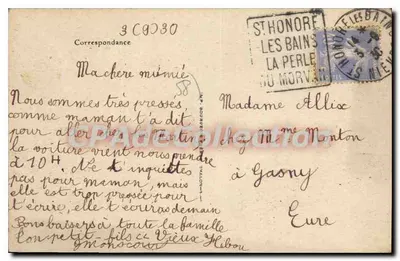 3C9030
Correspondance
ST HONORÉ
LES BAINS
LA PERLE
DU MORVAN
ST HONORÉ LES BAINS
NIEVRE
58
Ma chère mimie
Nous sommes très pressés
comme maman t'a dit
pour aller chez
la voiture vient nous prendre
à 10H. Ne t'inquiètes
pas pour maman, mais
elle est trop pressée pour
t'écrire, elle t'écriras demain
Bons baisers à toute la famille
ton petit-fils « Vieux Hibou
Madame Allix
chez Mme Monton
à Gasny
Eure